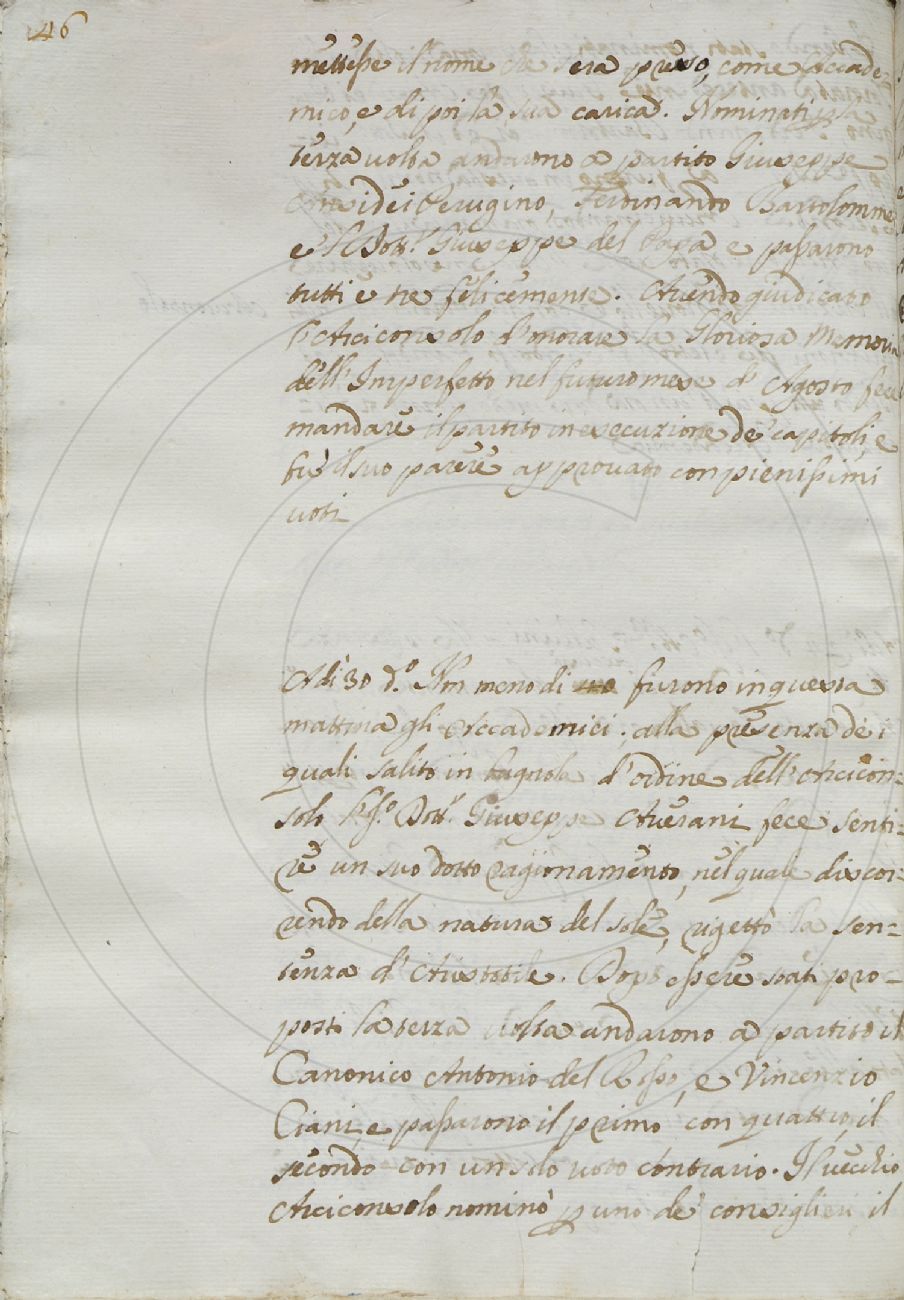 46
mettesse il nome che s'era preso, come Accade-
mico, e di poi la sua carica. Nominati p la
terza volta andarono a partito Giuseppe
Perugino, Ferdinando Bartolommei
e 'l Dott.r Giuseppe del Papa e passarono
tutti e tre felicemente. Avendo giudicato
l'Arciconsolo d'onorare la Gloriosa Memoria
dell'Imperfetto nel futuro mese d'Agosto fece
mandare il partito in esecuzione de' capitoli, e
fù il suo parere approvato con pienissimi
voti
Adì 30 d.o In meno di 40 furono in questa
mattina gli Accademici; alla presenza dè
quali salito in bugnola d'ordine dell'Arcicon=
solo Dott.r Giuseppe Averani fece senti=
re un suo dotto ragionamento, nel quale discor=
rendo della natura del sole, rigettò la sen=
tenza d'Aristotile. Dopo essere stati pro=
posti la terza volta andarono a partito il
Canonico Antonio del Rosso, e Vincenzio
Ciani, e passarono il primo con quattro, il
secondo con un solo voto contrario. Il vecchio
Arciconsolo nominò p uno de' consiglieri il